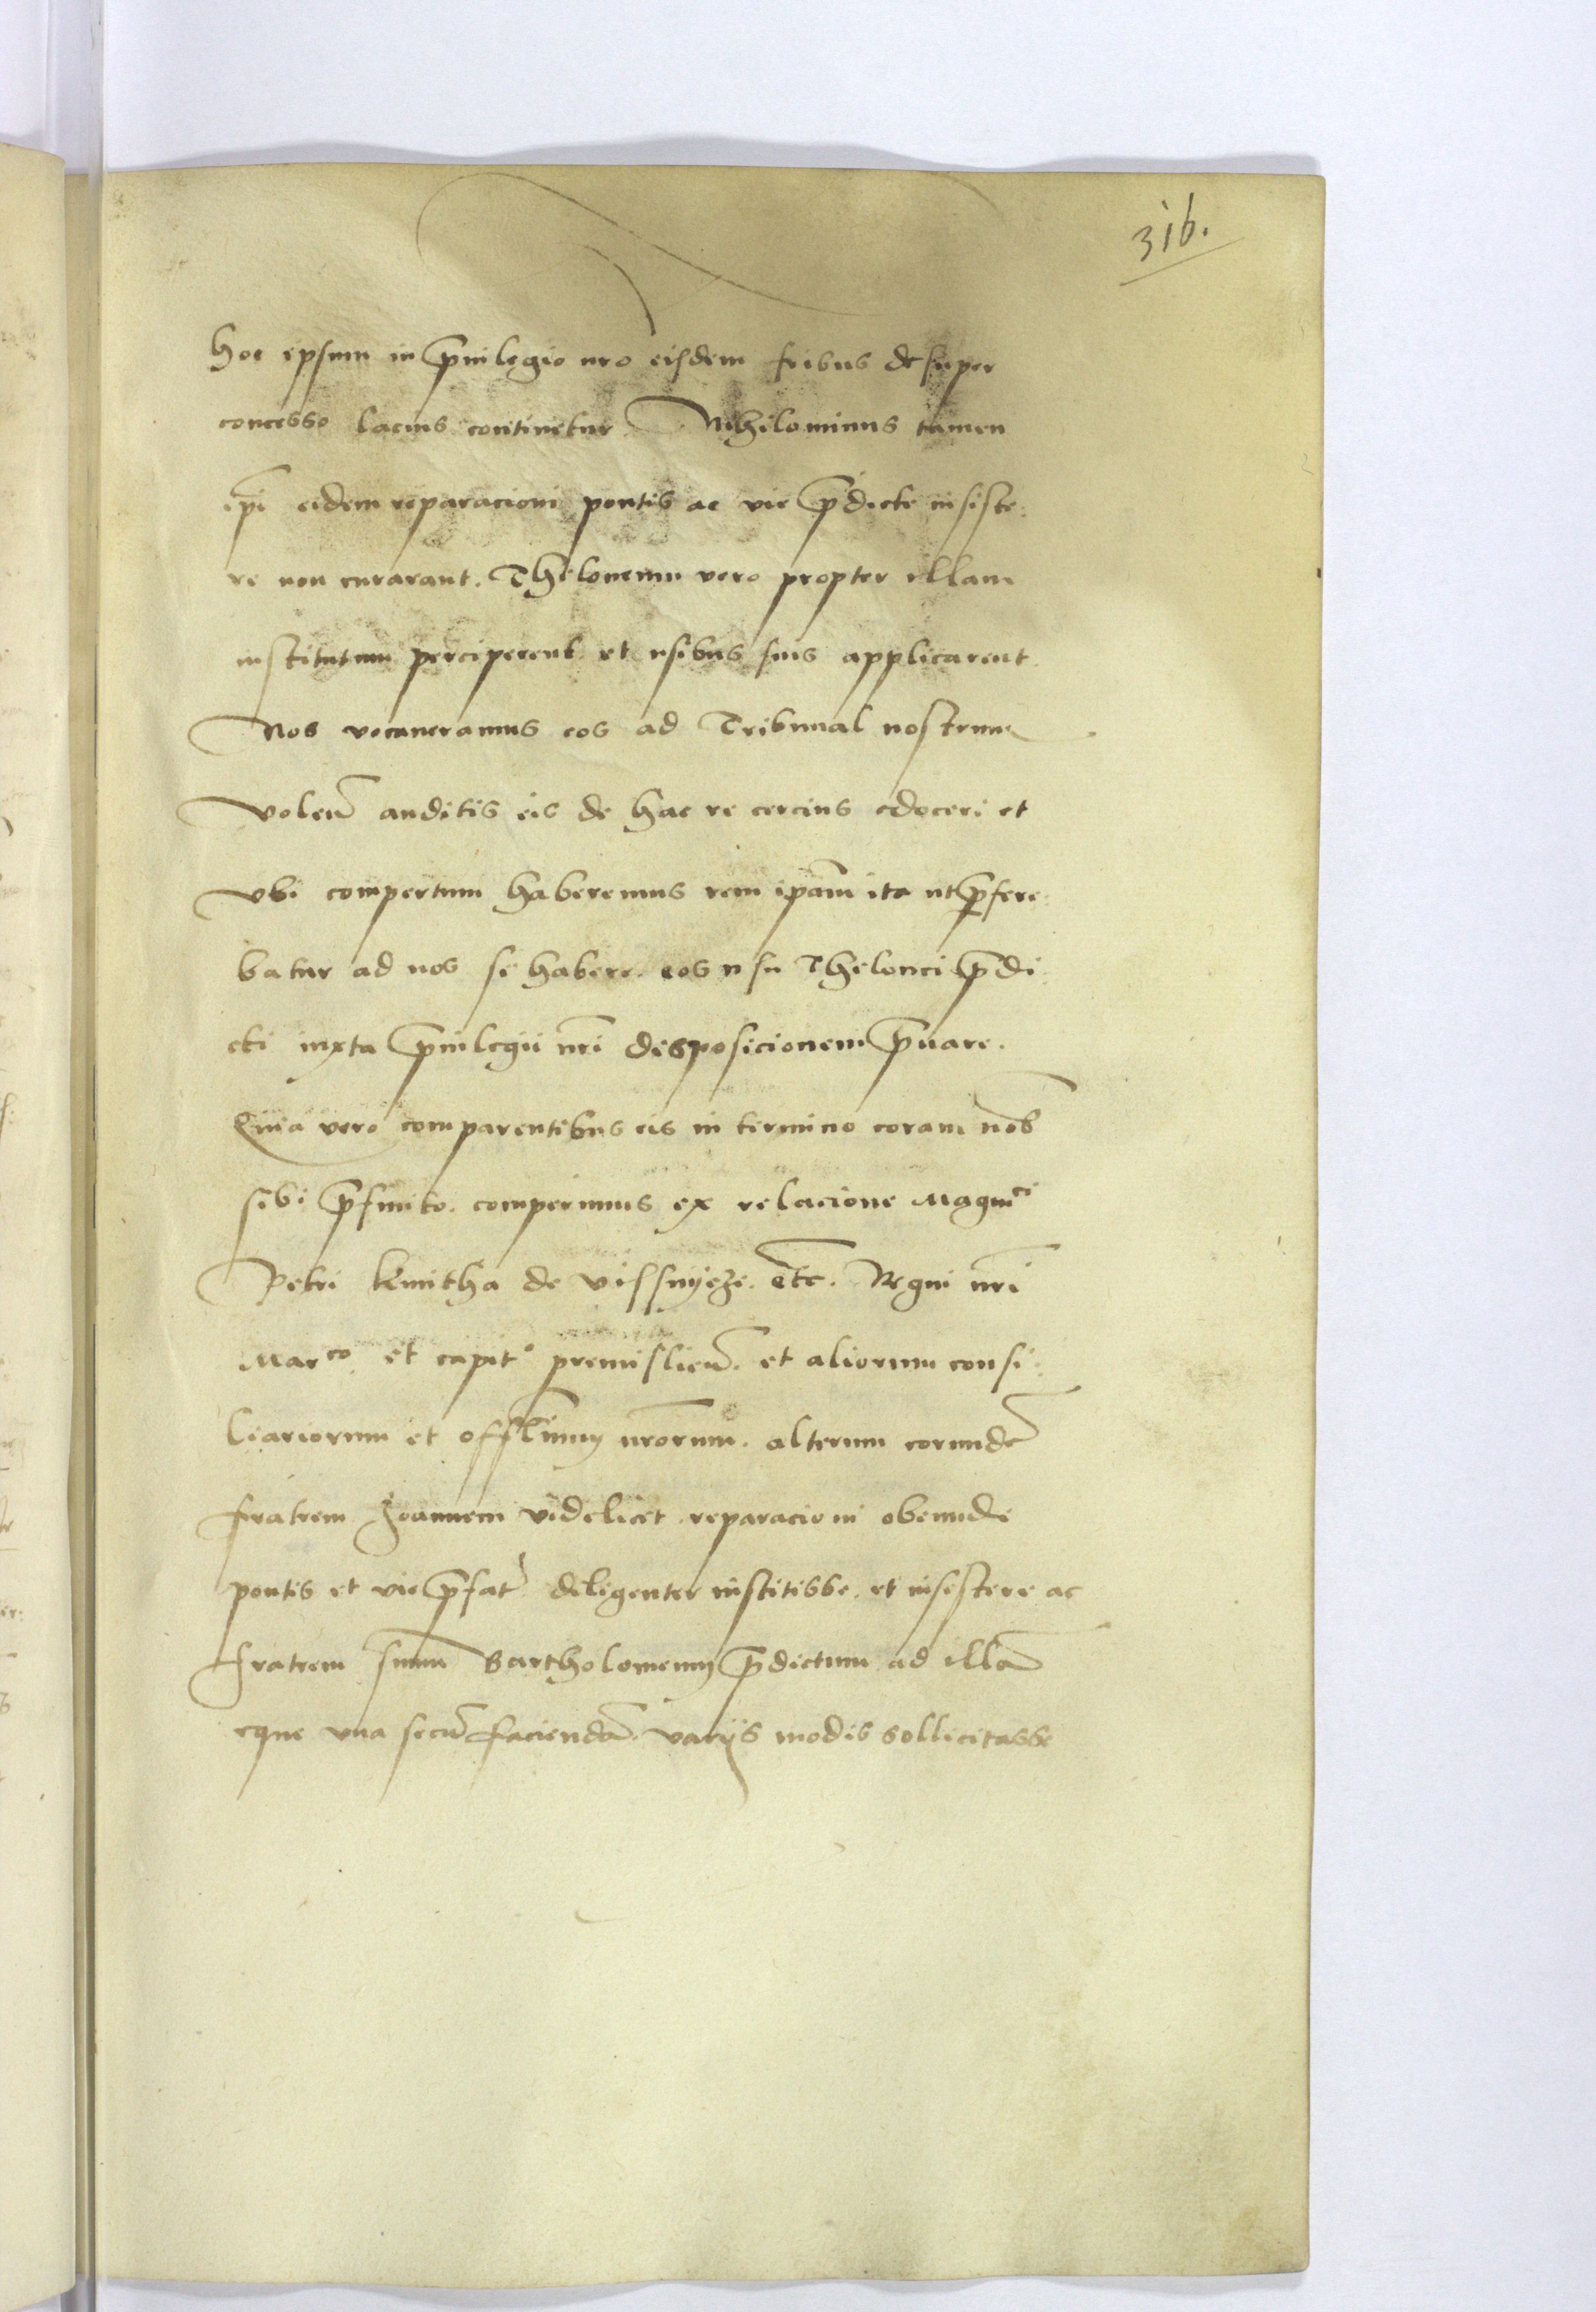 316.
hoc ipsum in p̅uilegio nr̅o eisdem fr̅ibus desuper
concesso lacius continetur Nihilominus tamen
ip̅i eidem reparacioni pontis ac vie p̅dicte insiste:
re non curarant. Theloneum vero propter illam
institutum perciperent et usibus suis applicarent
Nos vocaueramus eos ad Tribunal nostrum
Volen̅ auditis eis de hac re cercius edoceri et
vbi compertum haberemus rem ip̅am ita ut p̅fere:
batur ad nos se habere. eos usu Thelonei p̅di:
cti iuxta p̅uilegii nr̅i disposicionem p̅uare.
Quia vero comparentibus eis in termino coram nob̅
sibi p̅finito. comperimus ex relacione Magnᶜⁱ
Petri kmitha de vissnyeze. etc̅. Regni nr̅i
Marᶜᵒ et capitº premislien̅. et aliorum consi:
liariorum et offi̅limum nr̅orum. alterum eorundē
fratrem Joannem videlicet reparacioni obeunde
pontis et vie p̅fat' diligenter institisse. et insistere ac
fratrem suum Bartholomeum p̅dictum ad illā
eque vna secū faciendā. varijs modis sollicitasse